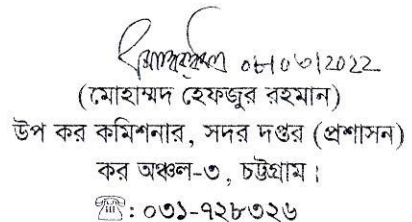 ০৮|০৩|2022
(মোহাম্মদ হেফজুর রহমান)
উপ কর কমিশনার, সদর দপ্তর (প্রশাসন)
কর অঞ্চল-৩, চট্টগ্রাম।
☎: ০৩১-৭২৮৩২৬